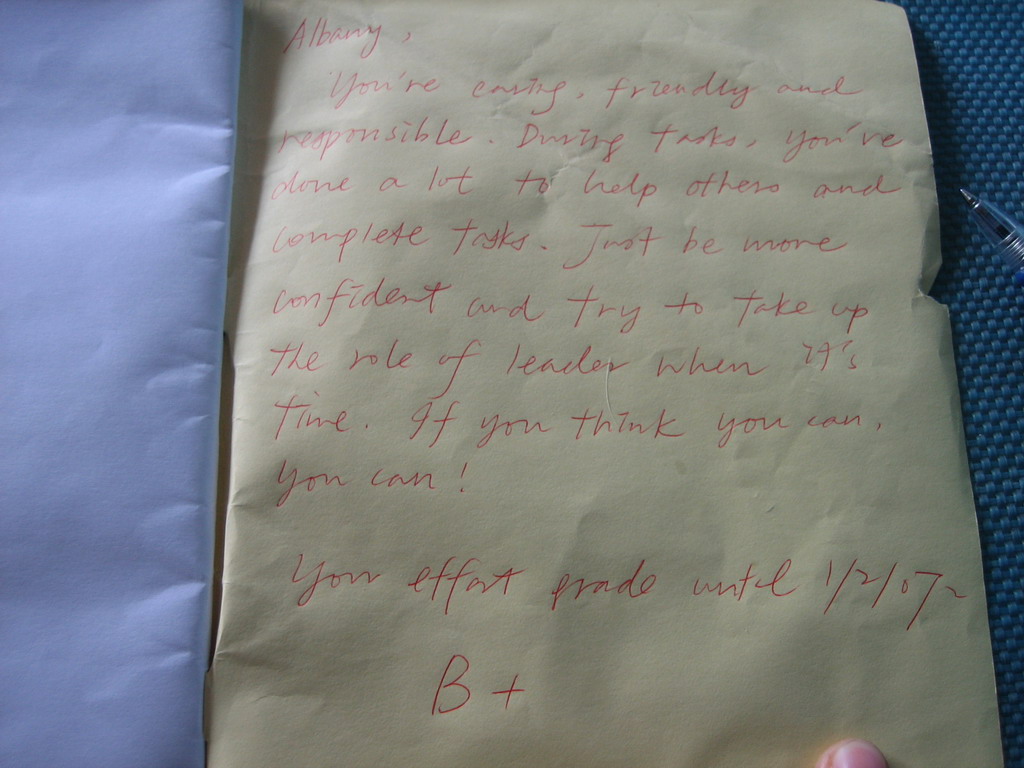 Albany,
You're caring, friendly and
responsible. During tasks, you've
done a lot to help others and
complete tasks. Just be more
confident and try to take up
the role of leader when it's
time. If you think you can,
you can!
Your effort grade until 1/2/07~
B+